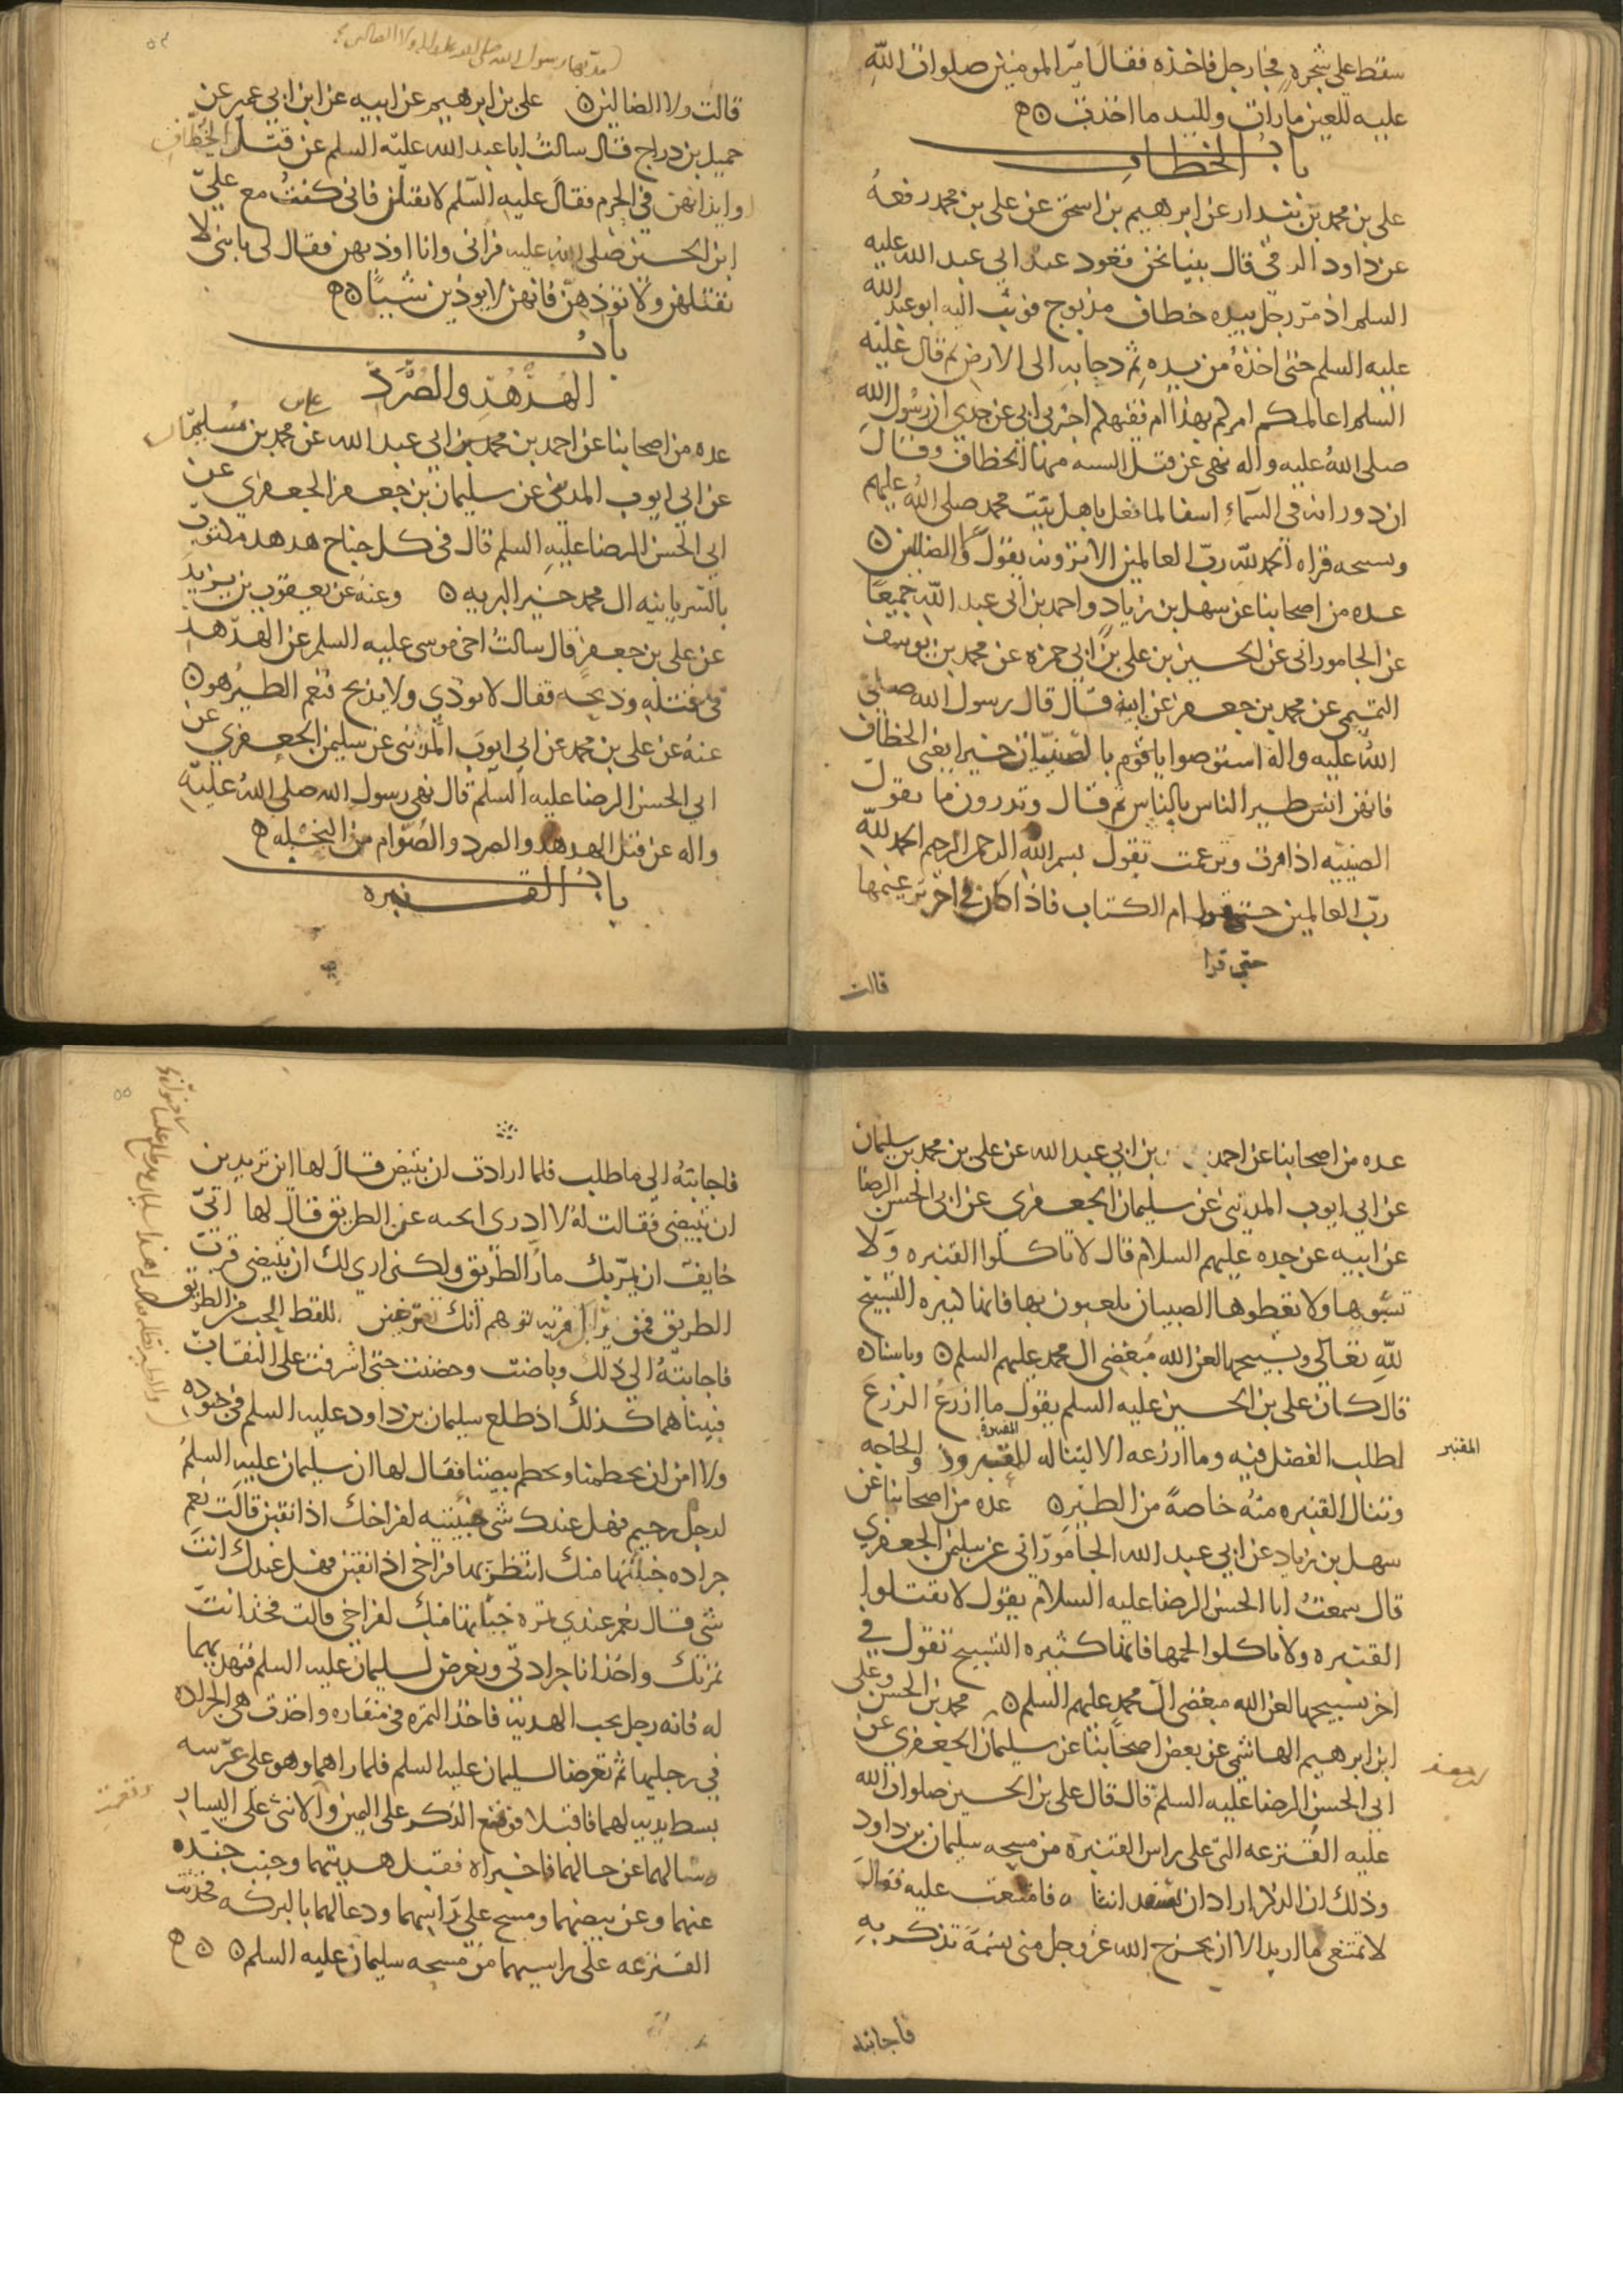 سقط على شجره فجا رجل فاخذه فقال امير المومنين صلوات الله
عليه للعين ما رات ولليد ما اخذت
باب الخطاف
على بن محمد بن بندار عن ابرهيم بن اسحق عن على بن محمد رفعه
عن داود الرقي قال بينا نحن قعود عند ابي عبد الله عليه
السلم اذ مر رجل بيده خطاف مذبوح فوثب اليه ابو عبد الله
عليه السلم حتى اخذه من يده ثم دحا به الى الارض ثم قال عليه
السلم اعالمكم امركم بهذا ام فقيهكم اخبرني ابي عن جدي ان رسول الله
صلى الله عليه واله نهى عن قتل السته منها الخطاف وقال
ان دورانه في السماء اسفا لما فعل باهل بيت محمد صلى الله عليهم
وتسبيحه قراه الحمد لله رب العالمين الا ترونه يقول ولا الضالين
عده من اصحابنا عن سهل بن زياد واحمد بن ابي عبد الله جميعا
عن الجاموراني عن الحسين بن على بن ابي حمزه عن محمد بن يوسف
التميمي عن محمد بن جعفر عن ابيه قال قال رسول الله صلى
الله عليه واله استوصوا يا قوم بالصنينيات خيرا يعني الخطاف
فانهن انس طير الناس بالناس ثم قال وتدرون ما تقول
الصنينيه اذا مرت وترنمت تقول بسم الله الرحمن الرحيم الحمد لله
رب العالمين حتى ام الكتاب فاذا كان في اخر ترنمها
حتى قرا
قالت
مد بها رسول الله صلى الله عليه واله ولا الضالين
قالت ولا الضالين على بن ابرهيم عن ابيه عن ابن ابي عمير عن
جميل بن دراج قال سالت ابا عبد الله عليه السلم عن قتل الخطاف
وايذائهن في الحرم فقال عليه السلم لا تقتلن فاني كنت مع علي
ابن الحسين صلى الله عليه فراني وانا اوذيهن فقال لى يا بني لا
تقتلهن ولا توذهن فانهن لا يوذين شيئا
باب
الهدهد والصرد
عده من اصحابنا عن احمد بن محمد بن ابي عبد الله عن محمد بن مسلم
عن ابي ايوب المديني عن سليمان بن جعفر الجعفري عن
ابي الحسن الرضا عليه السلم قال في كل جناح هدهد مكتوب
بالسريانيه ال محمد خير البريه وعنه عن يعقوب بن يزيد
عن على بن جعفر قال سالت اخي موسى عليه السلم عن الهدهد
في قتله وذبحه فقال لا يوذي ولا يذبح فنعم الطير هو
عنه عن على بن محمد عن ابي ايوب المديني عن سليمن الجعفري عن
ابي الحسن الرضا عليه السلم قال نهى رسول الله صلى الله عليه
واله عن قتل الهدهد والصرد والصوام من النحله
باب القنبره
عده من اصحابنا عن احمد بن ابي عبد الله عن على بن محمد بن سليمان
عن ابي ايوب المديني عن سليمان الجعفري عن ابي الحسن الرضا
عن ابيه عن جده عليهم السلام قال لا تاكلوا القنبره ولا
تسبوها ولا تعطوها الصبيان يلعبون بها فانها كثيره التسبيح
لله تعالى وتسبيحها لعن الله مبغضي ال محمد عليهم السلم وباسناده
قال كان على بن الحسين عليه السلم يقول ما ازرع الزرع
لطلب الفضل فيه وما ازرعه الا ليناله المعتر وذو الحاجه
وتنال القنبره منه خاصة من الطير عده من اصحابنا عن
سهل بن زياد عن ابي عبد الله الجاموراني عن سليمن الجعفري
قال سمعت ابا الحسن الرضا عليه السلام يقول لا تقتلوا
القنبره ولا تاكلوا لحمها فانها كثيره التسبيح تقول في
اخر تسبيحها لعن الله مبغضي ال محمد عليهم السلم محمد بن الحسن وعلى
ابن ابرهيم الهاشمي عن بعض اصحابنا عن سليمان الجعفري عن
ابي الحسن الرضا عليه السلم قال قال على بن الحسين صلوات الله
عليه القنزعه التي على راس القنبره من مسحه سليمان بن داود
وذلك ان الذكر اراد ان يسفد انثاه فامتنعت عليه فقال
لا تمتنعي ما اريد الا ان يخرج الله عز وجل مني نسمة تذكر به
فاجابته
فاجابته الى ما طلب فلما ارادت ان تبيض قال لها اين تريدين
ان تبيضي فقالت له لا ادري انحيه عن الطريق قال لها اني
خايف ان يمر بك مار الطريق ولكني ارى لك ان تبيضي قرب
الطريق فمن يراك قربه توهم انك تعرضين للقط الحب من الطريق
فاجابته الى ذلك وباضت وحضنت حتى اشرفت على النقاب
فبينا هما كذلك اذ طلع سليمان بن داود عليه السلم في جنوده
ولا امن ان يحطمنا ويحطم بيضنا فقال لها ان سليمان عليه السلم
لرجل رحيم فهل عندك شي خبيتيه لفراخك اذا نقبن قالت نعم
جراده خباتها منك انتظر بها فراخي اذا نقبن فهل عندك انت
شي قال نعم عندي تمره خباتها منك لفراخي قالت فخذ انت
تمرتك واخذ انا جرادتي ونعرض لسليمان عليه السلم فنهديهما
له فانه رجل يحب الهديه فاخذ التمره في منقاره واخذت هي الجراده
في رجليها ثم تعرضا لسليمان عليه السلم فلما راهما وهو على عرشه
بسط يديه لهما فاقبلا فوقع الذكر على اليمين والانثى على اليسار
وسالهما عن حالهما فاخبراه فقبل هديتهما وجنب جنده
عنهما وعن بيضهما ومسح على راسيهما ودعا لهما بالبركه فحدثت
القنزعه على راسيهما من مسحه سليمان عليه السلم